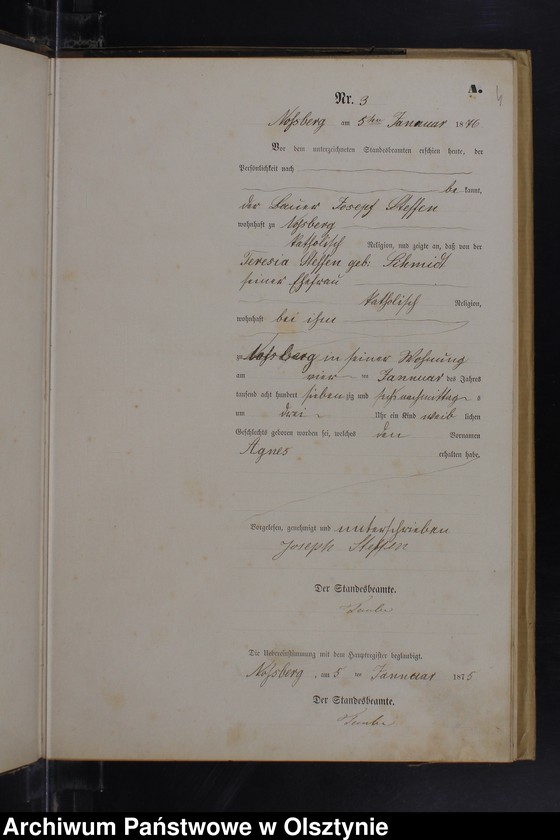 A.
4
Nr. 3
Noßberg am 5ten Januar 1876
Vor dem unterzeichneten Standesbeamten erschien heute, der
Persönlichkeit nach
be kannt,
der Bauer Josepf Steffen
wohnhaft zu Noßberg
katholisch Religion, und zeigte an, daß von der
Teresia Steffen geb: Schmidt
seiner Ehefrau
katholisch Religion,
wohnhaft bei ihm
zu Noßberg in seiner Wohnung
am vier ten Januar des Jahres
tausend acht hundert sieben zig und sechs nachmittag s
um drei Uhr ein Kind weib lichen
Geschlechts geboren worden sei, welches den Vornamen
Agnes erhalten habe.
Vorgelesen, genehmigt und unterschrieben
Joseph Steffen
Der Standesbeamte.
Die Uebereinstimmung mit dem Hauptregister beglaubigt.
Noßberg, am 5 ten Januar 1875
Der Standesbeamte.
Archiwum Państwowe w Olsztynie